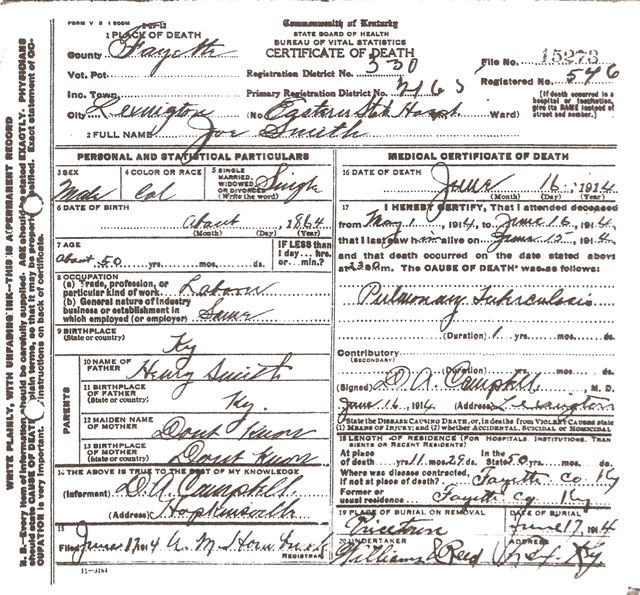 FORM V S 1 500M
2-20-12
Commonwealth of Kentucky
STATE BOARD OF HEALTH
BUREAU OF VITAL STATISTICS
CERTIFICATE OF DEATH
1 PLACE OF DEATH
County Fayette
Vot. Pct.
Inc. Town
City Lexington
Registration District No. 330
Primary Registration District No. 2165
(No Eastern State Hospt Ward)
File No. 15273
Registered No. 546
[If death occurred in a hospital or institution, give its NAME instead of street and number.]
2 FULL NAME Joe Smith
PERSONAL AND STATISTICAL PARTICULARS
3 SEX Male
4 COLOR OR RACE Col
5 SINGLE MARRIED, WIDOWED OR DIVORCED (Write the word) Single
6 DATE OF BIRTH
about 1864
(Month) (Day) (Year)
7 AGE
About 50 yrs. mos. ds.
IF LESS than 1 day... hrs. or... min.?
8 OCCUPATION
(a) Trade, profession, or particular kind of work Laborer
(b) General nature of industry business or establishment in which employed (or employer) Same
9 BIRTHPLACE (State or country) Ky
PARENTS
10 NAME OF FATHER Henry Smith
11 BIRTHPLACE OF FATHER (State or country) Ky.
12 MAIDEN NAME OF MOTHER Dont Know
13 BIRTHPLACE OF MOTHER (State or country) Dont Know
14 THE ABOVE IS TRUE TO THE BEST OF MY KNOWLEDGE
(Informant) D. A. Campbell
(Address) Hopkinsville
15
Filed June 17 1914
REGISTRAR
11-3184
MEDICAL CERTIFICATE OF DEATH
16 DATE OF DEATH
June 16, 1914
(Month) (Day) (Year)
17 I HEREBY CERTIFY, That I attended deceased
from May 1, 1914, to June 16, 1914,
that I last saw him alive on June 15, 1914,
and that death occurred on the date stated above
at 330 m. The CAUSE OF DEATH was as follows:
Pulmonary Tuberculosis
(Duration) 1 yrs. mos. ds.
Contributory
(SECONDARY)
(Duration) yrs. mos. ds.
(Signed) D. A. Campbell, M. D.
June 16, 1914 (Address) Lexington
State the DISEASE CAUSING DEATH, or, in deaths from VIOLENT CAUSES state (1) MEANS OF INJURY; and (2) whether ACCIDENTAL, SUICIDAL or HOMICIDAL
18 LENGTH OF RESIDENCE (FOR HOSPITALS, INSTITUTIONS, TRANSIENTS OR RECENT RESIDENTS)
At place of death yrs. 11 mos. 25 ds. In the State 50 yrs. mos. ds.
Where was disease contracted, if not at place of death? Fayette Co Ky
Former or usual residence Fayette Co Ky
19 PLACE OF BURIAL OR REMOVAL
DATE OF BURIAL June 17, 1914
20 UNDERTAKER Williams & Reed
ADDRESS Lex Ky
WRITE PLAINLY, WITH UNFADING INK—THIS IS A PERMANENT RECORD
N. B.—Every item of information should be carefully supplied. AGE should be stated EXACTLY. PHYSICIANS should state CAUSE OF DEATH in plain terms, so that it may be properly classified. Exact statement of OCCUPATION is very important. See instructions on back of certificate.